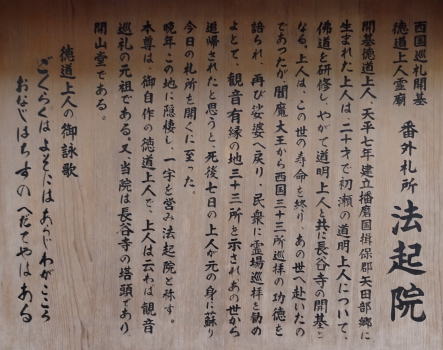 西国巡礼開基
徳道上人霊廟
番外札所 法起院
開基徳道上人、天平七年建立播磨国揖保郡矢田部郷に
生まれた上人は二十才で初瀬の道明上人について、
佛道を研修し、やがて道明上人と共に長谷寺の開基と
なる。上人は、この世の寿命を終り、あの世へ赴いたの
であったが、閻魔大王から西国三十三所巡拝の功徳を
語られ、再び娑婆へ戻り、民衆に霊場巡拝を勧め
よとて、観音有縁の地三十三所を示されあの世から
追帰されたと思うと、死後七日の上人が元の身に蘇り
今日の札所を開くに至った。
晩年この地に隠棲し、一宇を営み法起院と称す。
本尊は、御自作の徳道上人で、上人は云わば観音
巡礼の元祖である。又、当院は長谷寺の塔頭であり
開山堂である。
徳道上人の御詠歌
ごくらくはよそにはあらじわがこころ
おなじはちすのへだてやはある